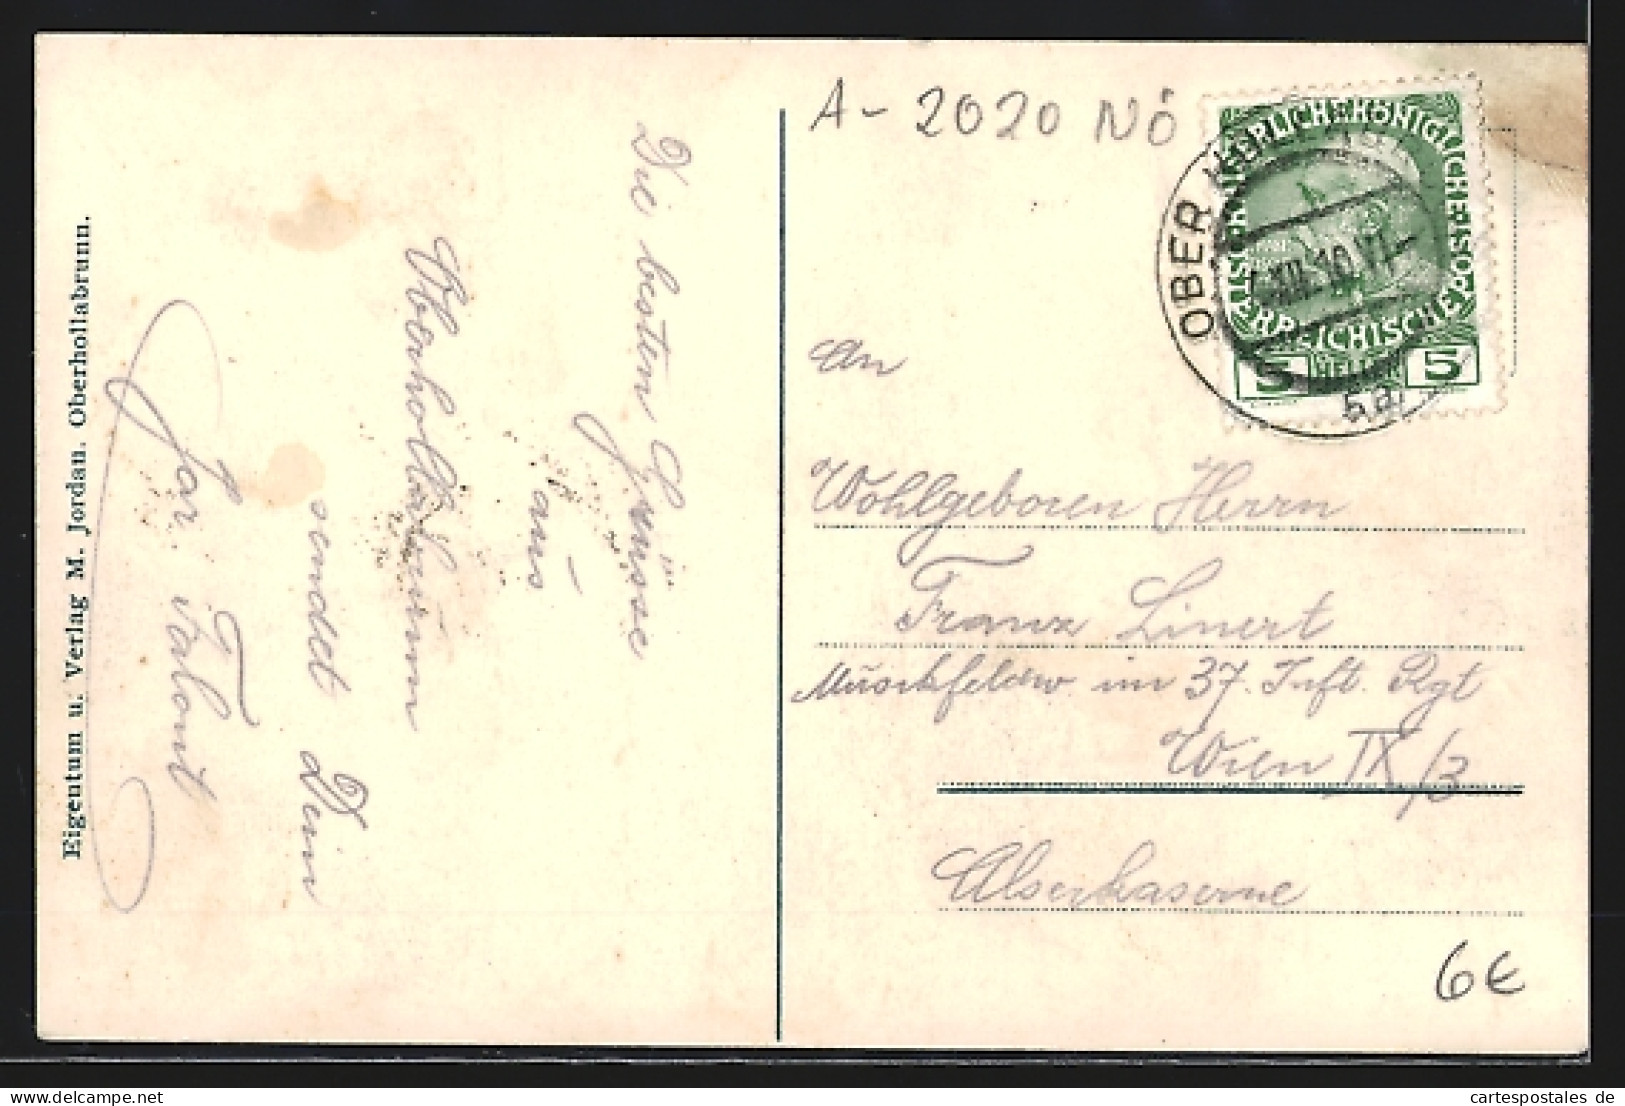 Eigentum u. Verlag M. Jordan. Oberhollabrunn.
Die besten Grüsse
aus
Oberhollabrunn
sendet Dein
A-2020 NÖ
KAISERLICHE KÖNIGLICHE ÖSTERREICHISCHE POST
5 HELLER 5
OBER
XII.10.VI-
An
Wohlgeboren Herrn
Franz Linert
im 37. Inft. Rgt
Wien IX/3
Alserkaserne
6€
cartespostales de